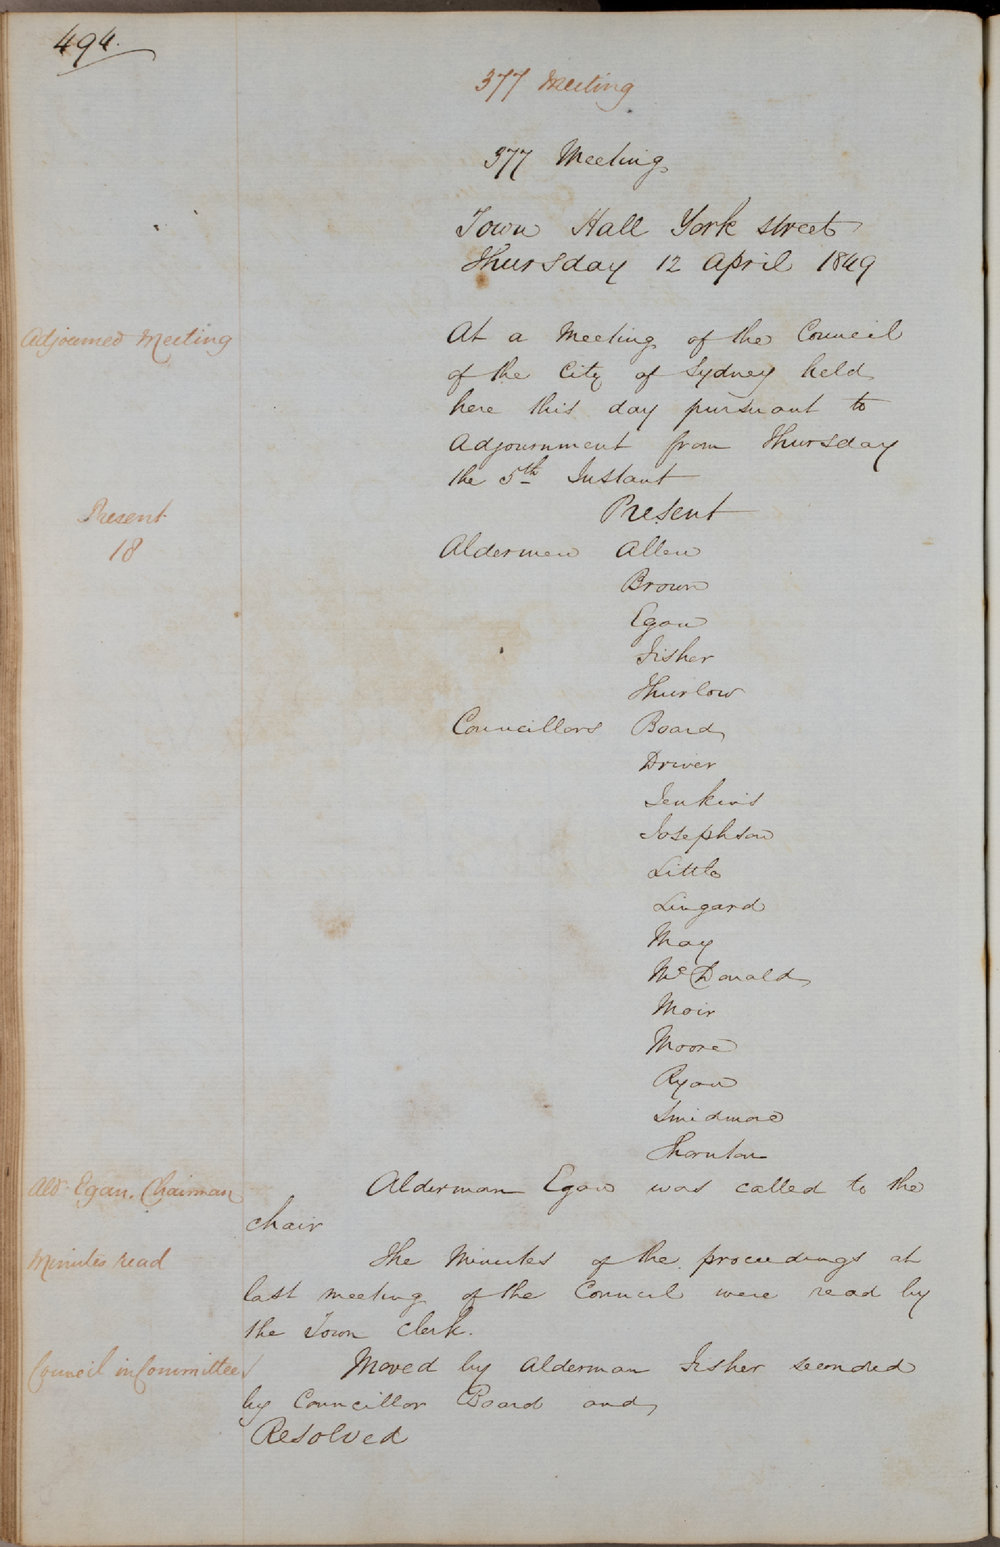 494.
377 Meeting
377 Meeting
Town Hall York street
Thursday 12 April 1849
Adjourned Meeting
At a Meeting of the Council
of the City of Sydney held
here this day pursuant to
Adjournment from Thursday
the 5th Instant
Present
18
Present
Aldermen Allen
Brown
Egan
Fisher
Thurlow
Councillors Board
Driver
Jenkins
Josephson
Little
Lingard
May
McDonald
Moir
Moore
Ryan
Smidmore
Thornton
Ald Egan. Chairman
Alderman Egan was called to the
chair
Minutes read
The Minutes of the proceedings at
last meeting of the Council were read by
the Town Clerk.
Council in Committee
Moved by Alderman Fisher seconded
by Councillor Board and
Resolved